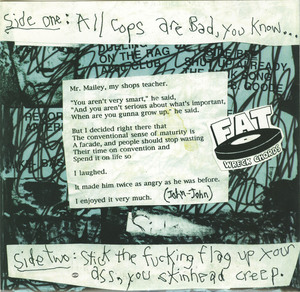 Side one: All Cops are Bad, you know...
ON THE RAG
Mr. Mailey, my shops teacher.
"You aren't very smart," he said,
"And you aren't serious about what's important,
When are you gunna grow up," he said.
But I decided right there that
The conventional sense of maturity is
A facade, and people should stop wasting
Their time on convention and
Spend it on life so
I laughed.
It made him twice as angry as he was before.
I enjoyed it very much.
(John-John)
FAT
WRECK CHORDS
Side two: Stick the fucking flag up your
ass, you skinhead creep.